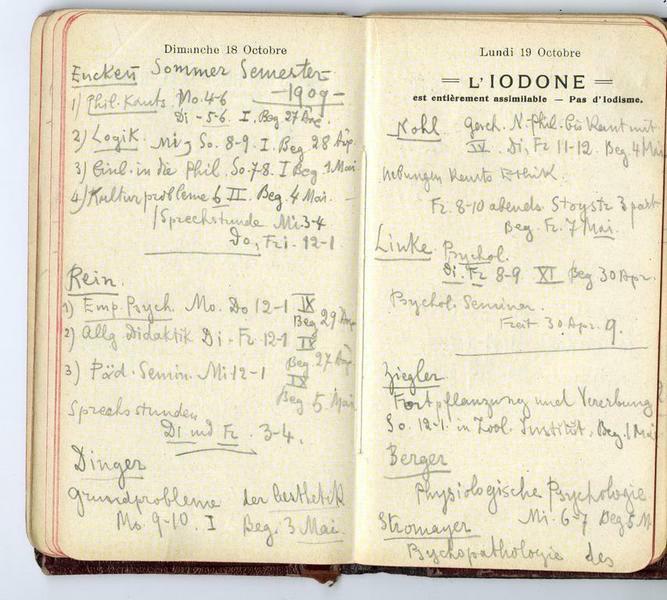 Dimanche 18 Octobre
Eucken Sommer Semester
1) Phil. Kants. Mo. 4-6 —1909—
Di - 5-6. I. Beg 27 Apr.
2) Logik. Mi, So. 8-9. I. Beg 28 Apr.
3) Einl. in die Phil. So. 7-8. I Beg 1 Mai
4) Kulturprobleme 6 II. Beg. 4 Mai.
Sprechstunde Mi. 3-4
Do, Fri. 12-1.
Rein.
1) Emp. Psych. Mo. Do 12-1 IX
Beg 29 Apr
2) Allg Didaktik Di - Fr. 12-1 IX
Beg 27 Apr
3) Päd. Semin. Mi 12-1 IX
Beg 5 Mai
Sprechstunden
Di und Fr. 3-4.
Dinger
Grundprobleme der Aesthetik
Mo. 9-10. I Beg. 3 Mai.
Lundi 19 Octobre
L'IODONE
est entièrement assimilable — Pas d'Iodisme.
Nohl Gesch. N. Phil. bis Kant mit
IV. Di, Fr 11-12. Beg 4 Mai
Uebungen Kants Ethik.
Fr. 8-10 abends. Stoystr. 3 part
Beg. Fr. 7 Mai.
Linke Psychol.
Di. Fr 8-9 XI Beg 30 Apr.
Psychol. Seminar.
Freit 30 Apr. 9.
Ziegler
Fortpflanzung und Vererbung
So. 12-1. in Zool. Institut, Beg. 1 Mai
Berger
Physiologische Psychologie
Mi. 6-7 Beg 5 M.
Stromayer
Psychopathologie des